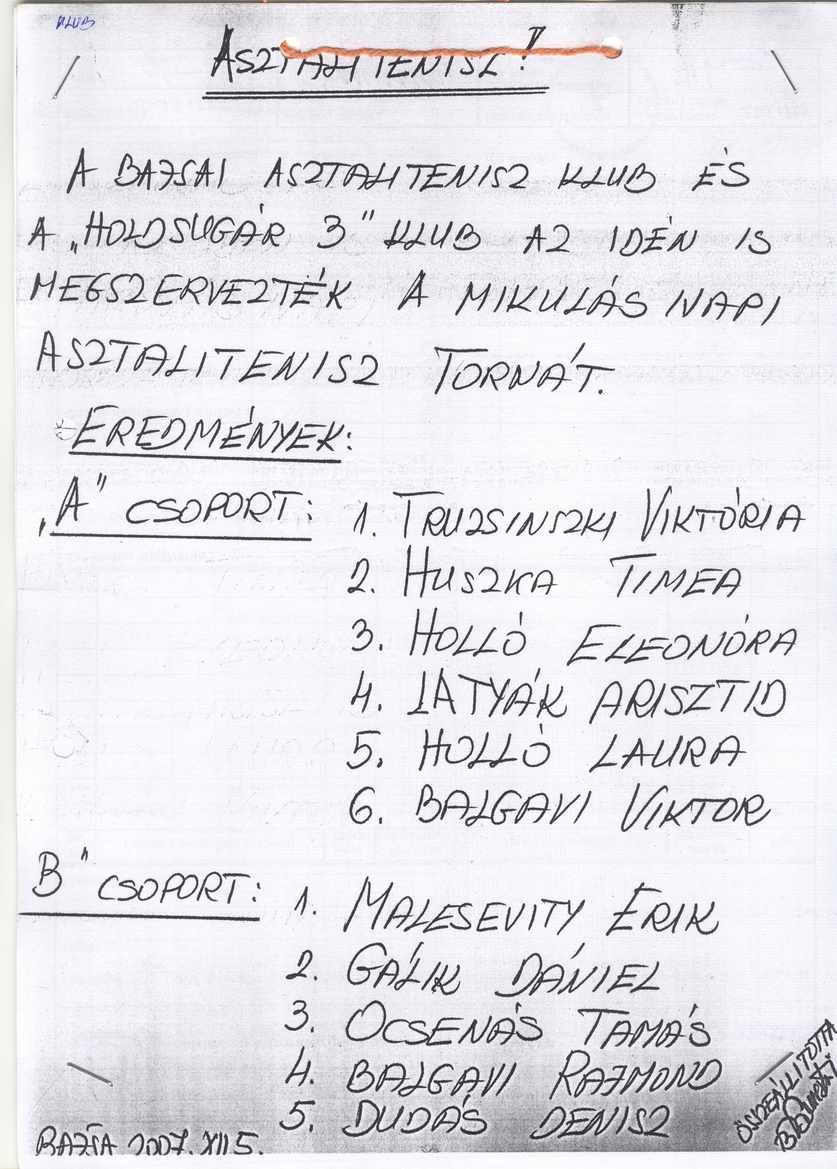 KLUB
ASZTALITENISZ!
A BAJSAI ASZTALITENISZ KLUB ÉS
A „HOLDSUGÁR 3" KLUB AZ IDÉN IS
MEGSZERVEZTÉK A MIKULÁS NAPI
ASZTALITENISZ TORNÁT.
EREDMÉNYEK:
„A" CSOPORT: 1. TRUZSINSZKI VIKTÓRIA
2. HUSZKA TIMEA
3. HOLLÓ ELEONÓRA
4. LATYÁK ARISZTID
5. HOLLÓ LAURA
6. BALGAVI VIKTOR
B" CSOPORT: 1. MALESEVITY ERIK
2. GÁLIK DÁNIEL
3. OCSENÁS TAMÁS
4. BALGAVI RAJMOND
5. DUDÁS DENISZ
BAJSA 2007. XII 5.
ÖSSZEÁLLÍTOTTA